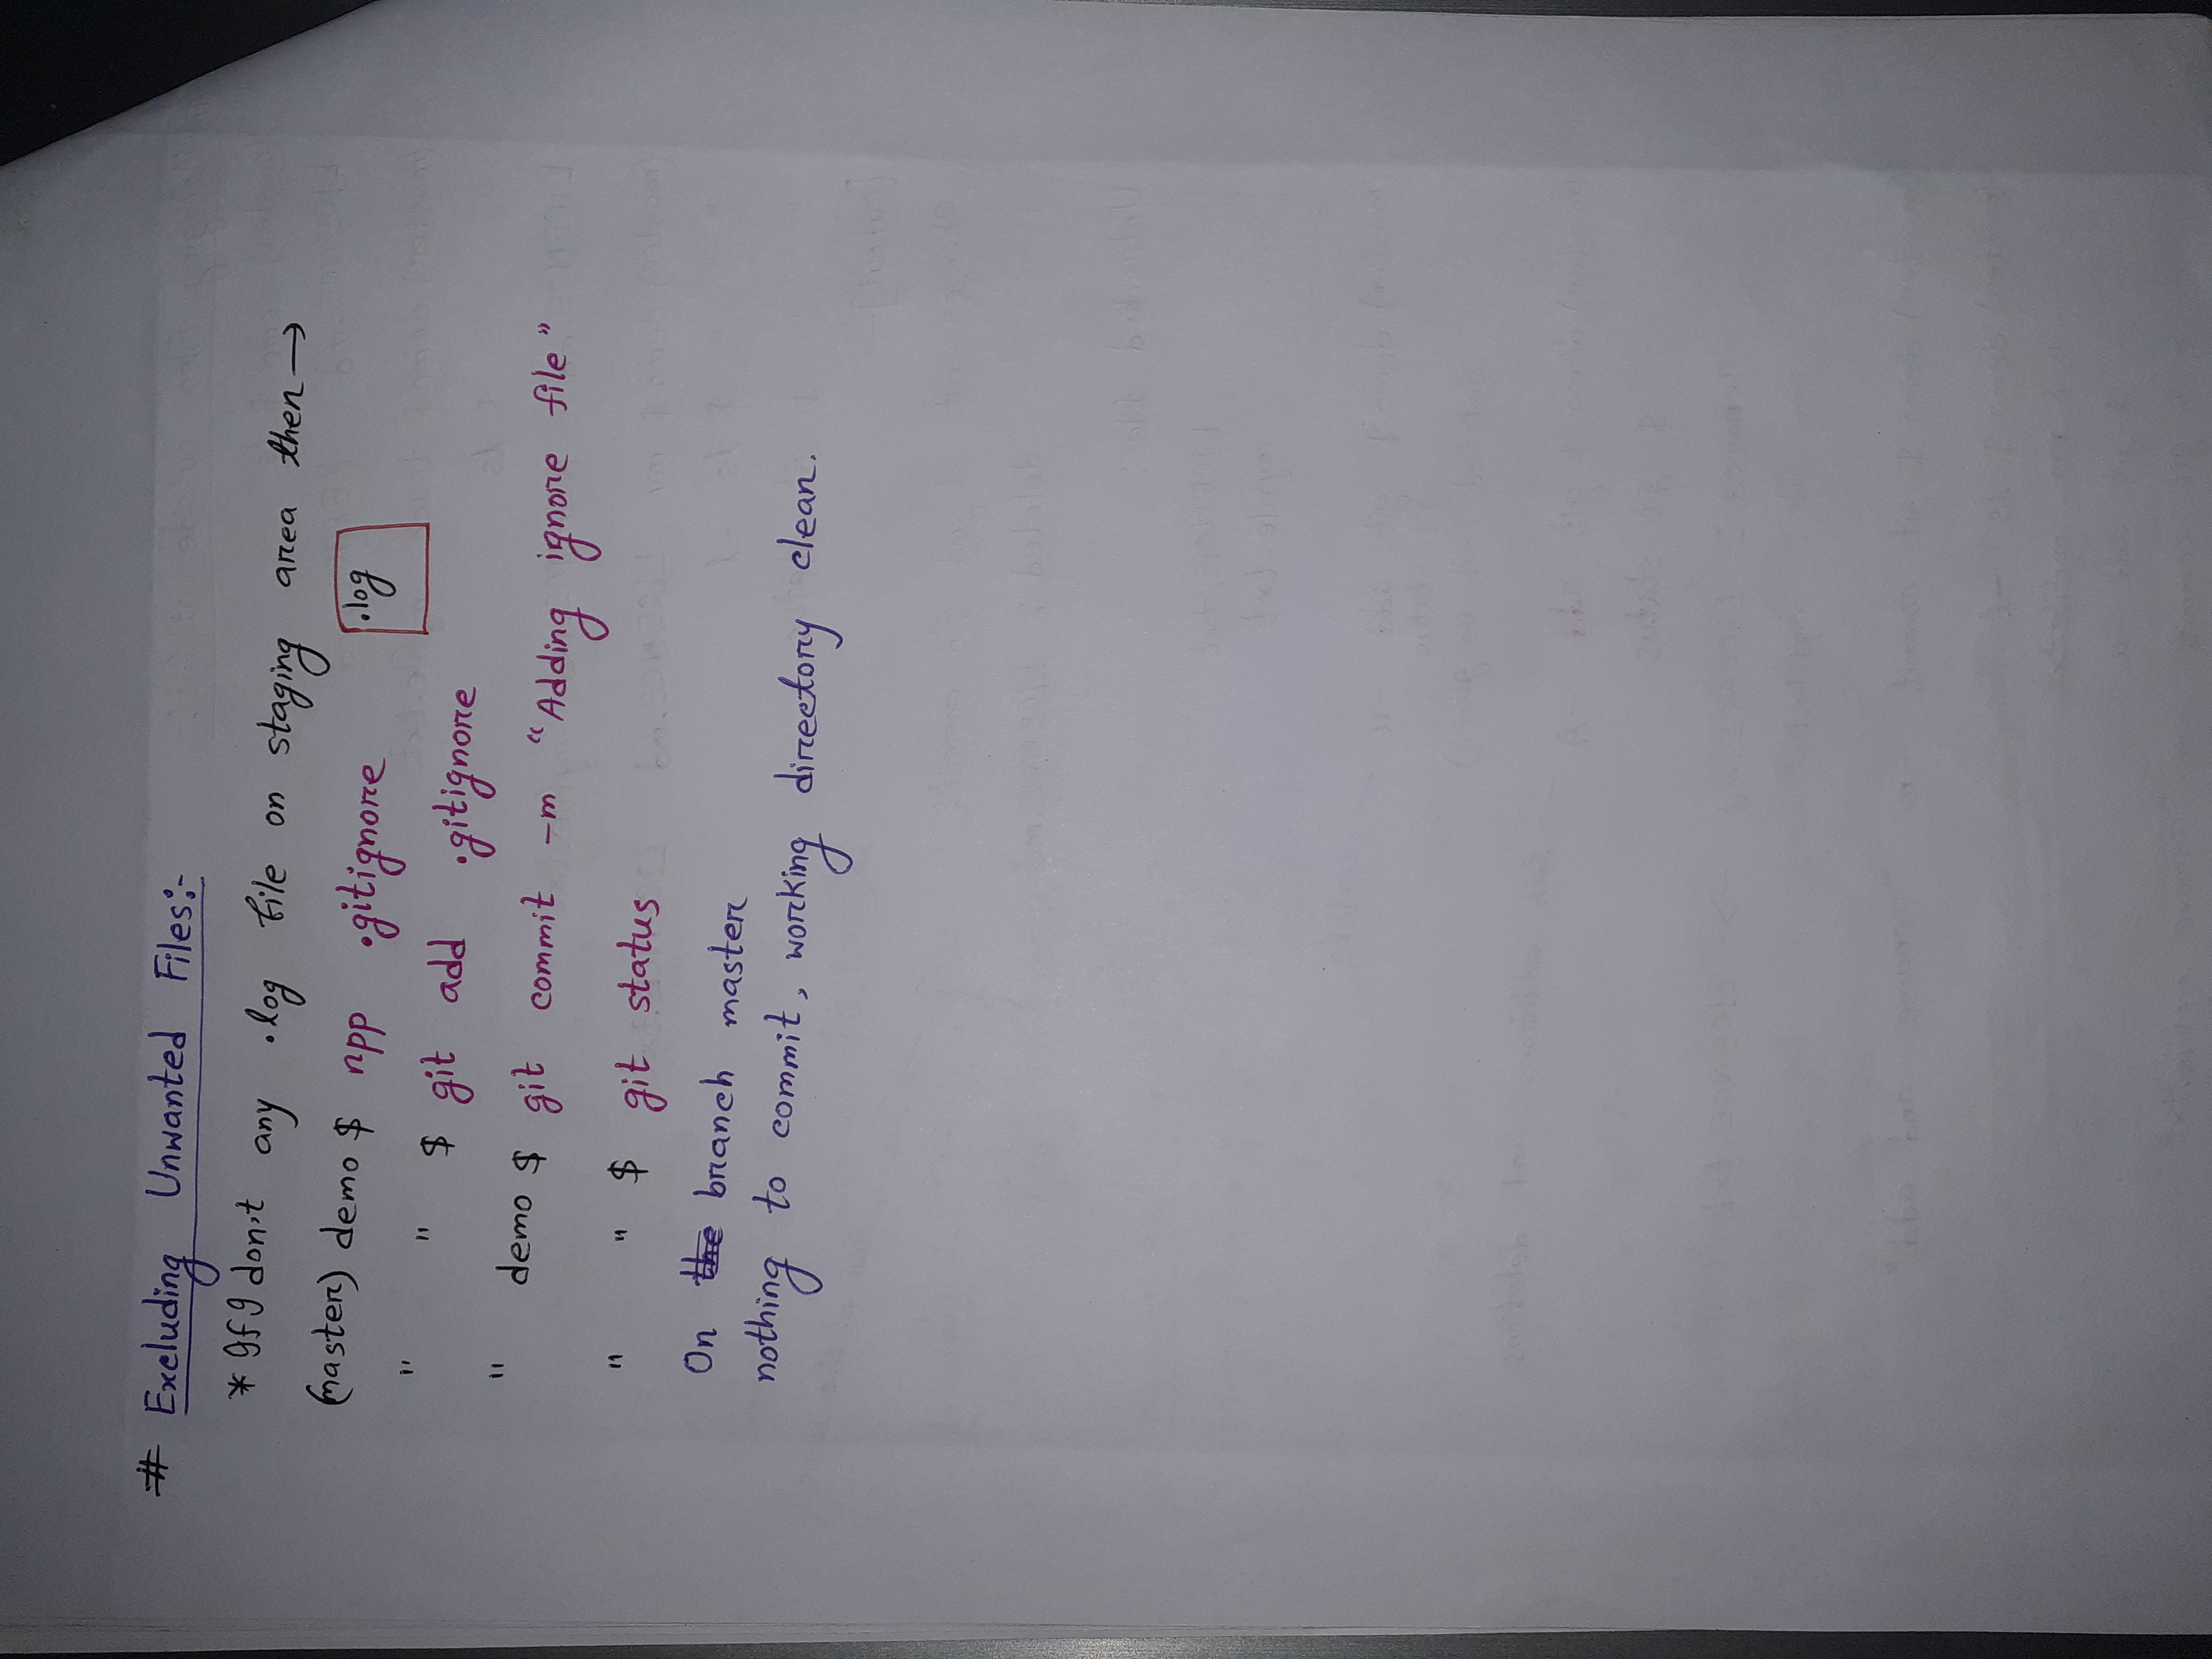 # Excluding Unwanted Files:-
* If I don't any .log file on staging area then →
(master) demo $ npp .gitignore .log
" " $ git add .gitignore
" demo $ git commit -m "Adding ignore file"
" " $ git status
On the branch master
nothing to commit, working directory clean.